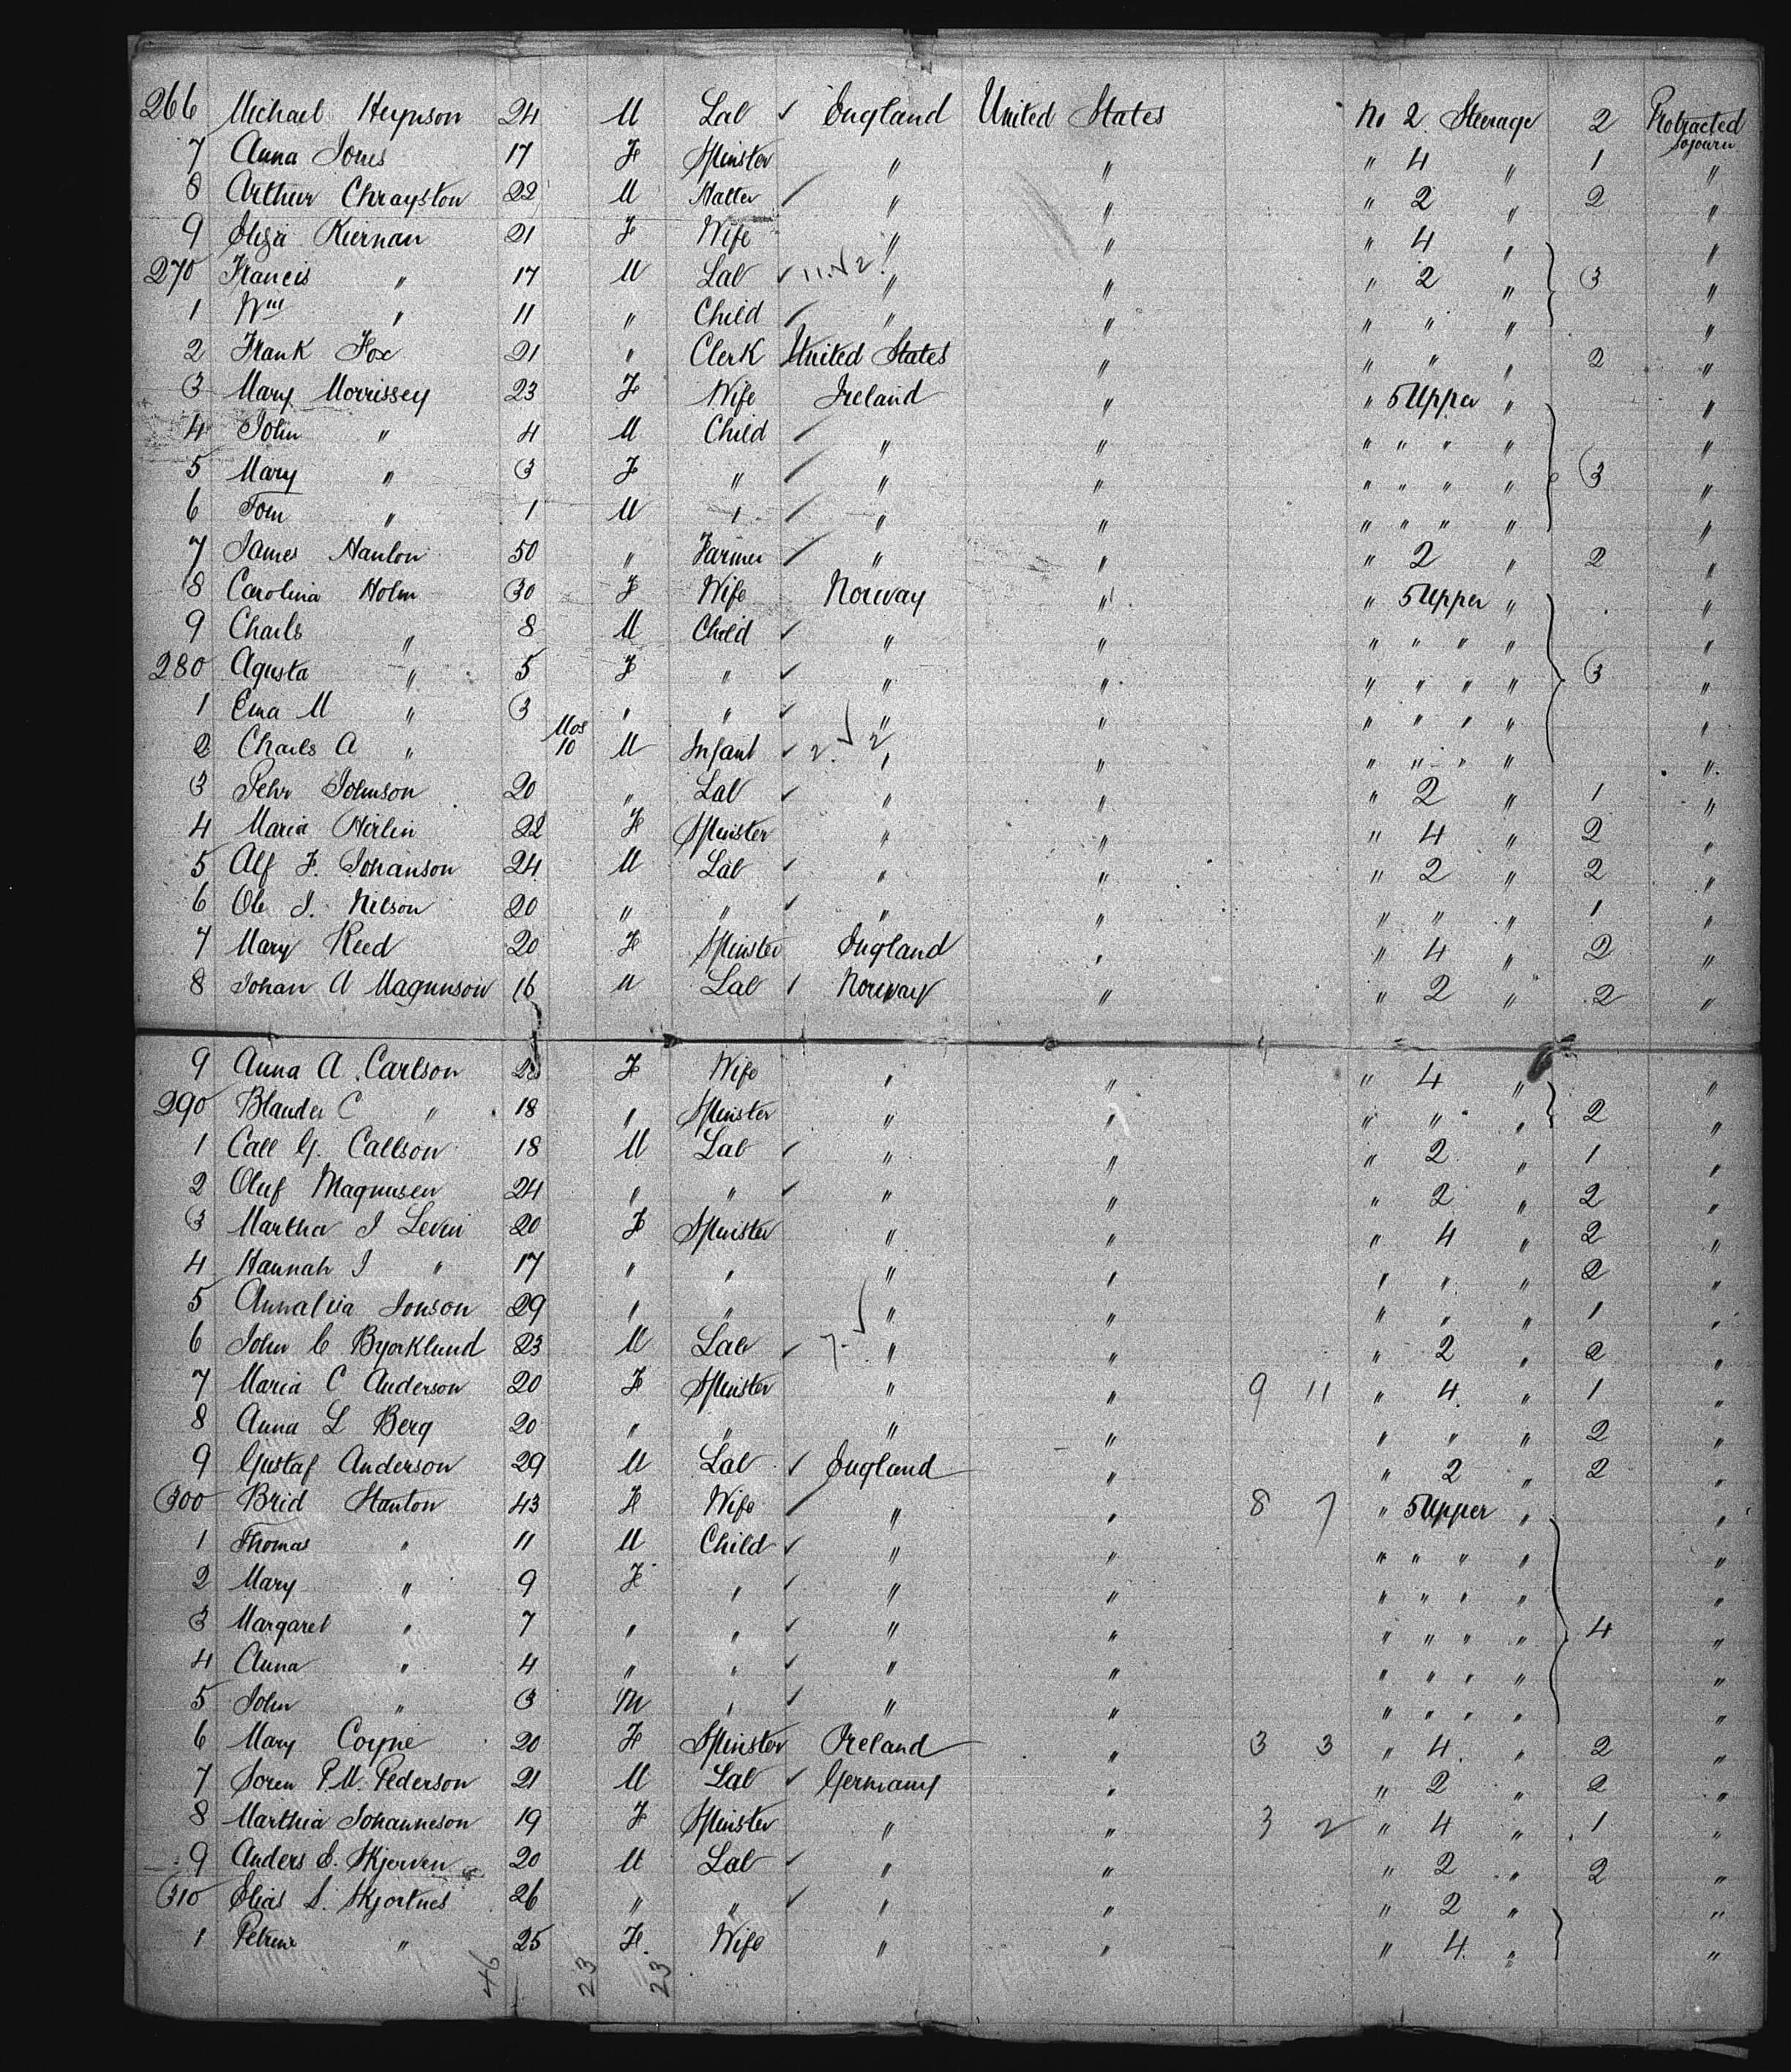 266 Michael Hypnson 24 M Lab ✓ England United States No 2 Steerage 2 Protracted Sojourn
7 Anna Jones 17 F Spinster " " " 4 " 1 "
8 Arthur Chrayston 22 M Hatter / " " " 2 " 2 "
9 Eliza Kiernan 21 F Wife " " " 4 " "
270 Francis " 17 M Lab ✓ " " " 2 " 3 "
1 Wm " 11 " Child / " " " " " "
2 Frank Fox 21 " Clerk United States " " " " 2 "
3 Mary Morrissey 23 F Wife Ireland " " 5 Upper " "
4 John " 4 M Child / " " " " " " "
5 Mary " 3 F " / " " " " " " 3 "
6 Tom " 1 M " / " " " " " " "
7 James Hanlon 50 " Farmer / " " " 2 " 2 "
8 Carolina Holm 30 F Wife Norway " " 5 Upper " "
9 Charls " 8 M Child ✓ " " " " " " "
280 Agusta " 5 F " ✓ " " " " " " 3 "
1 Ema M " 3 " " ✓ " " " " " " "
2 Charls A " Mos 10 M Infant ✓ 2 2 " " " " " " "
3 Pehr Johnson 20 " Lab ✓ " " " 2 " 1 "
4 Maria Herlin 22 F Spinster " " " 4 " 2 "
5 Alf F. Johanson 24 M Lab ✓ " " " 2 " 2 "
6 Ole J. Nilson 20 " " ✓ " " " " " 1 "
7 Mary Reed 20 F Spinster England " " 4 " 2 "
8 Johan A Magnunson 16 M Lab / Norway " " 2 " 2 "
9 Anna A. Carlson F Wife " " " 4 " "
290 Blander C " 18 " Spinster " " " " " 2 "
1 Call G. Callson 18 M Lab ✓ " " " 2 " 1 "
2 Oluf Magnusen 24 " " ✓ " " " 2 " 2 "
3 Martha J Levin 20 F Spinster " " " 4 " 2 "
4 Hannah J " 17 " " " " " " " 2 "
5 Annalisa Jonson 29 " " " " " " " 1 "
6 John C Byorklund 23 M Lab ✓ 7 " " " 2 " 2 "
7 Maria C Anderson 20 F Spinster " " 9 11 " 4 " 1 "
8 Anna L Berg 20 " " " " " " " 2 "
9 Gustaf Anderson 29 M Lab ✓ England " " 2 " 2 "
300 Brid Stanton 43 F Wife / " " 8 7 " 5 Upper " "
1 Thomas " 11 M Child ✓ " " " " " " "
2 Mary " 9 F " ✓ " " " " " " "
3 Margaret " 7 " " ✓ " " " " " " 4 "
4 Anna " 4 " " ✓ " " " " " " "
5 John " 3 M " ✓ " " " " " " "
6 Mary Coyne 20 F Spinster Ireland " 3 3 " 4 " 2 "
7 Soren P.M. Pederson 21 M Lab ✓ Germany " " 2 " 2 "
8 Marthia Johanneson 19 F Spinster " " 3 2 " 4 " 1 "
9 Anders E. Skjerven 20 M Lab ✓ " " " 2 " 2 "
310 Elias S. Skjortnes 26 " " ✓ " " " 2 " "
1 Petrine " 25 F. Wife " " " 4 " "
46 23 23